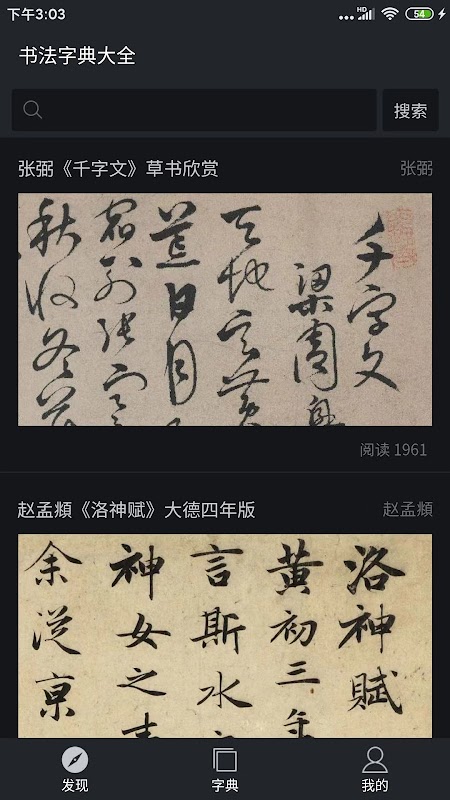 下午3:03
HD
54
书法字典大全
搜索
张弼《千字文》草书欣赏
张弼
千字文
梁周興
天地玄黄
荒日月
宿列張寒
秋收冬藏
阅读 1961
赵孟頫《洛神赋》大德四年版
赵孟頫
洛神賦
黄初三年
言斯水
神女之事
余從京
发现
字典
我的